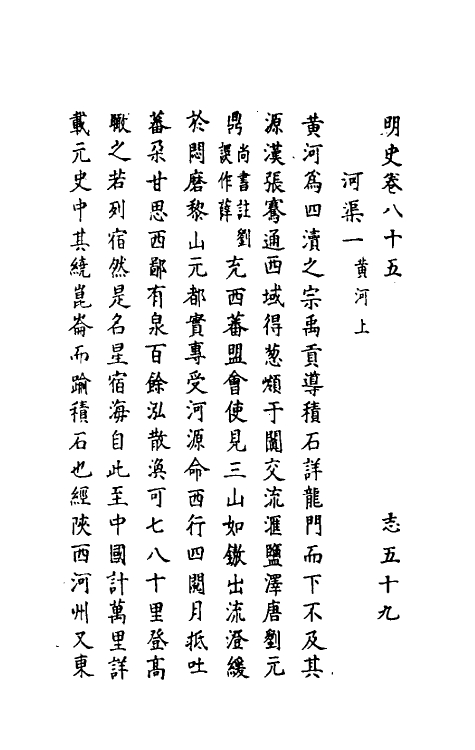 明史卷八十五 志五十九
河渠一 黃河上
黃河為四瀆之宗禹貢導積石詳龍門而下不及其
源漢張騫通西域得葱嶺于闐交流滙鹽澤唐劉元
鼎尚書註劉誤作薛充西蕃盟會使見三山如鏃出流澄緩
於悶磨黎山元都實專受河源命西行四閱月抵吐
蕃朶甘思西鄙有泉百餘泓散渙可七八十里登高
瞰之若列宿然是名星宿海自此至中國計萬里詳
載元史中其繞崑崙而踰積石也經陝西河州又東